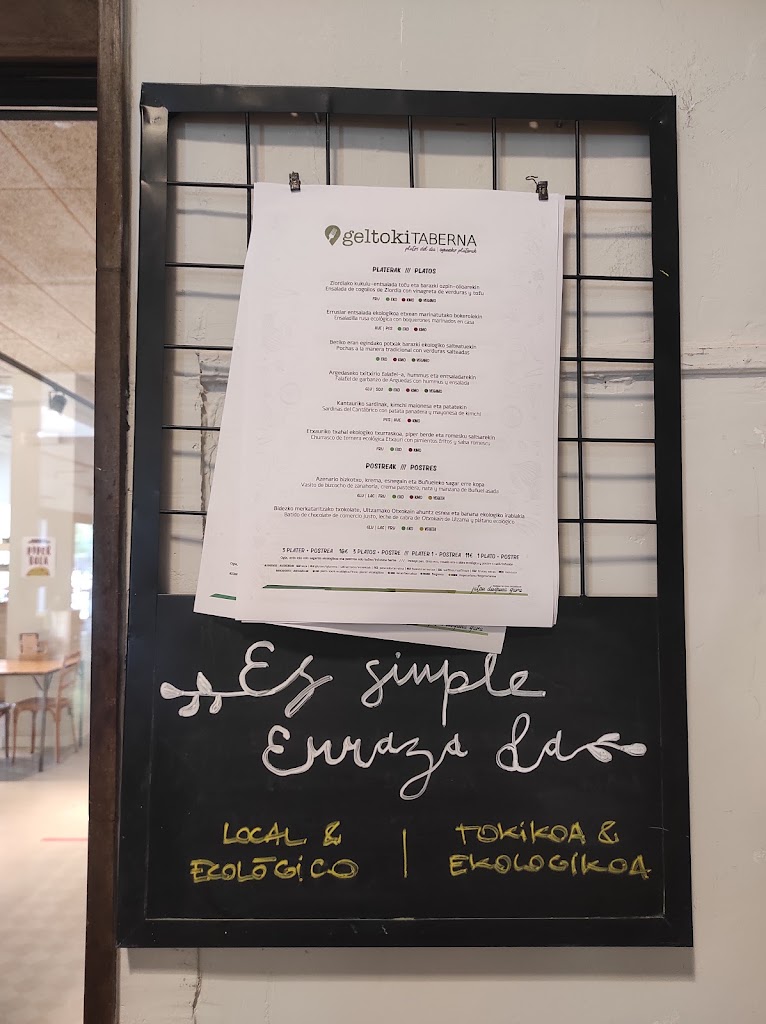 geltokiTABERNA
platos del día | eguneko platerak
PLATERAK /// PLATOS
Ziordiako kukulu-entsalada tofu eta barazki ozpin-olioarekin
Ensalada de cogollos de Ziordia con vinagreta de verduras y tofu
FRU | EKO KM0 VEGANO
Errusiar entsalada ekologikoa etxean marinatutako bokeroiekin
Ensaladilla rusa ecológica con boquerones marinados en casa
HUE | PES | EKO KM0
Betiko eran egindako potxak barazki ekologiko salteatuekin
Pochas a la manera tradicional con verduras salteadas
EKO KM0 VEGANO
Argedaseko txitxirio falafel-a, hummus eta entsaladarekin
Falafel de garbanzo de Arguedas con hummus y ensalada
EKO KM0 VEGANO
Kantauriko sardinak, kimchi maionesa eta patatekin
Sardinas del Cantábrico con patata panadera y mayonesa de kimchi
PES | HUE | KM0
Etxauriko txahal ekologiko txurraskoa, piper berde eta romesku saltsarekin
Churrasco de ternera ecológica Etxauri con pimientos fritos y salsa romescu
FRU | EKO KM0
POSTREAK /// POSTRES
Azenario bizkotxo, krema, esnegain eta Buñueleko sagar erre kopa
Vasito de bizcocho de zanahoria, crema pastelera, nata y manzana de Buñuel asada
GLU | LAC | FRU | EKO KM0 VEGETA
Bidezko merkataritzako txokolate, Ultzamako Otxokain ahuntz esnea eta banana ekologiko irabiakia
Batido de chocolate de comercio justo, leche de cabra de Otxokain de Ultzama y plátano ecológico
GLU | LAC | FRU | EKO VEGETA
3 PLATER + POSTREA 16€ 3 PLATOS + POSTRE // PLATER 1 + POSTREA 11€ 1 PLATO + POSTRE
jaten duguna gara
Es simple
Erraza da
LOCAL & | TOKIKOA &
ECOLÓGICO | EKOLOGIKOA